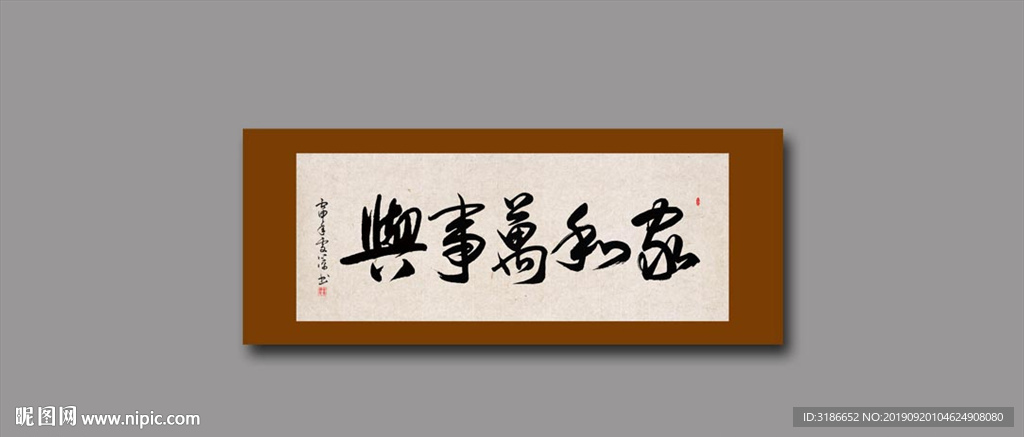 家和萬事興
昵图网 www.nipic.com
ID:3186652 NO:20190920104624908080